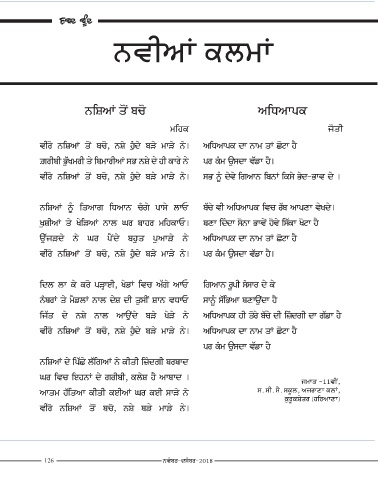 ਸ਼ਬਦ ਬੂੰਦ
ਨਵੀਆਂ ਕਲਮਾਂ
ਨਸ਼ਿਆਂ ਤੋਂ ਬਚੋ
ਮਹਿਕ
ਵੀਰੋ ਨਸ਼ਿਆਂ ਤੋਂ ਬਚੋ, ਨਸ਼ੇ ਹੁੰਦੇ ਬੜੇ ਮਾੜੇ ਨੇ।
ਗ਼ਰੀਬੀ ਭੁੱਖਮਰੀ ਤੇ ਬਿਮਾਰੀਆਂ ਸਭ ਨਸ਼ੇ ਦੇ ਹੀ ਕਾਰੇ ਨੇ
ਵੀਰੋ ਨਸ਼ਿਆਂ ਤੋਂ ਬਚੋ, ਨਸ਼ੇ ਹੁੰਦੇ ਬੜੇ ਮਾੜੇ ਨੇ।
ਨਸ਼ਿਆਂ ਨੂੰ ਤਿਆਗ ਧਿਆਨ ਚੰਗੇ ਪਾਸੇ ਲਾਓ
ਖੁਸ਼ੀਆਂ ਤੇ ਖੇੜਿਆਂ ਨਾਲ ਘਰ ਬਾਹਰ ਮਹਿਕਾਓ।
ਉੱਜੜਦੇ ਨੇ ਘਰ ਪੈਂਦੇ ਬਹੁਤ ਪੁਆੜੇ ਨੇ
ਵੀਰੋ ਨਸ਼ਿਆਂ ਤੋਂ ਬਚੋ, ਨਸ਼ੇ ਹੁੰਦੇ ਬੜੇ ਮਾੜੇ ਨੇ।
ਦਿਲ ਲਾ ਕੇ ਕਰੋ ਪੜ੍ਹਾਈ, ਖੇਡਾਂ ਵਿਚ ਅੱਗੇ ਆਓ
ਨੰਬਰਾਂ ਤੇ ਮੈਡਲਾਂ ਨਾਲ ਦੇਸ਼ ਦੀ ਤੁਸੀਂ ਸ਼ਾਨ ਵਧਾਓ
ਜਿੱਤ ਦੇ ਨਸ਼ੇ ਨਾਲ ਆਉਂਦੇ ਬੜੇ ਖੇੜੇ ਨੇ
ਵੀਰੋ ਨਸ਼ਿਆਂ ਤੋਂ ਬਚੋ, ਨਸ਼ੇ ਹੁੰਦੇ ਬੜੇ ਮਾੜੇ ਨੇ।
ਨਸ਼ਿਆਂ ਦੇ ਪਿੱਛੇ ਲੱਗਿਆਂ ਨੇ ਕੀਤੀ ਜ਼ਿੰਦਗੀ ਬਰਬਾਦ
ਘਰ ਵਿਚ ਇਹਨਾਂ ਦੇ ਗਰੀਬੀ, ਕਲੇਸ਼ ਹੈ ਆਬਾਦ ।
ਆਤਮ ਹੱਤਿਆ ਕੀਤੀ ਕਈਆਂ ਘਰ ਕਈ ਸਾੜੇ ਨੇ
ਵੀਰੋ ਨਸ਼ਿਆਂ ਤੋਂ ਬਚੋ, ਨਸ਼ੇ ਬੜੇ ਮਾੜੇ ਨੇ।
ਅਧਿਆਪਕ
ਜੋਤੀ
ਅਧਿਆਪਕ ਦਾ ਨਾਮ ਤਾਂ ਛੋਟਾ ਹੈ
ਪਰ ਕੰਮ ਉਸਦਾ ਵੱਡਾ ਹੈ।
ਸਭ ਨੂੰ ਦੇਵੇ ਗਿਆਨ ਬਿਨਾਂ ਕਿਸੇ ਭੇਦ-ਭਾਵ ਦੇ ।
ਬੱਚੇ ਵੀ ਅਧਿਆਪਕ ਵਿਚ ਰੱਬ ਆਪਣਾ ਵੇਖਦੇ।
ਬਣਾ ਦਿੰਦਾ ਸੋਨਾ ਭਾਵੇਂ ਹੋਵੇ ਸਿੱਕਾ ਖੋਟਾ ਹੈ
ਅਧਿਆਪਕ ਦਾ ਨਾਮ ਤਾਂ ਛੋਟਾ ਹੈ
ਪਰ ਕੰਮ ਉਸਦਾ ਵੱਡਾ ਹੈ।
ਗਿਆਨ ਰੂਪੀ ਸੰਸਾਰ ਦੇ ਕੇ
ਸਾਨੂੰ ਸੱਭਿਆ ਬਣਾਉਂਦਾ ਹੈ
ਅਧਿਆਪਕ ਹੀ ਤੋਰੇ ਬੱਚੇ ਦੀ ਜ਼ਿੰਦਗੀ ਦਾ ਗੱਡਾ ਹੈ
ਅਧਿਆਪਕ ਦਾ ਨਾਮ ਤਾਂ ਛੋਟਾ ਹੈ
ਪਰ ਕੰਮ ਉਸਦਾ ਵੱਡਾ ਹੈ
ਜਮਾਤ -11ਵੀਂ,
ਸ. ਸੀ. ਸੈ. ਸਕੂਲ, ਅਜਰਾਣਾ ਕਲਾਂ,
ਕੁਰੂਕਸ਼ੇਤਰ (ਹਰਿਆਣਾ)
126
ਨਵੰਬਰ-ਦਸੰਬਰ-2018